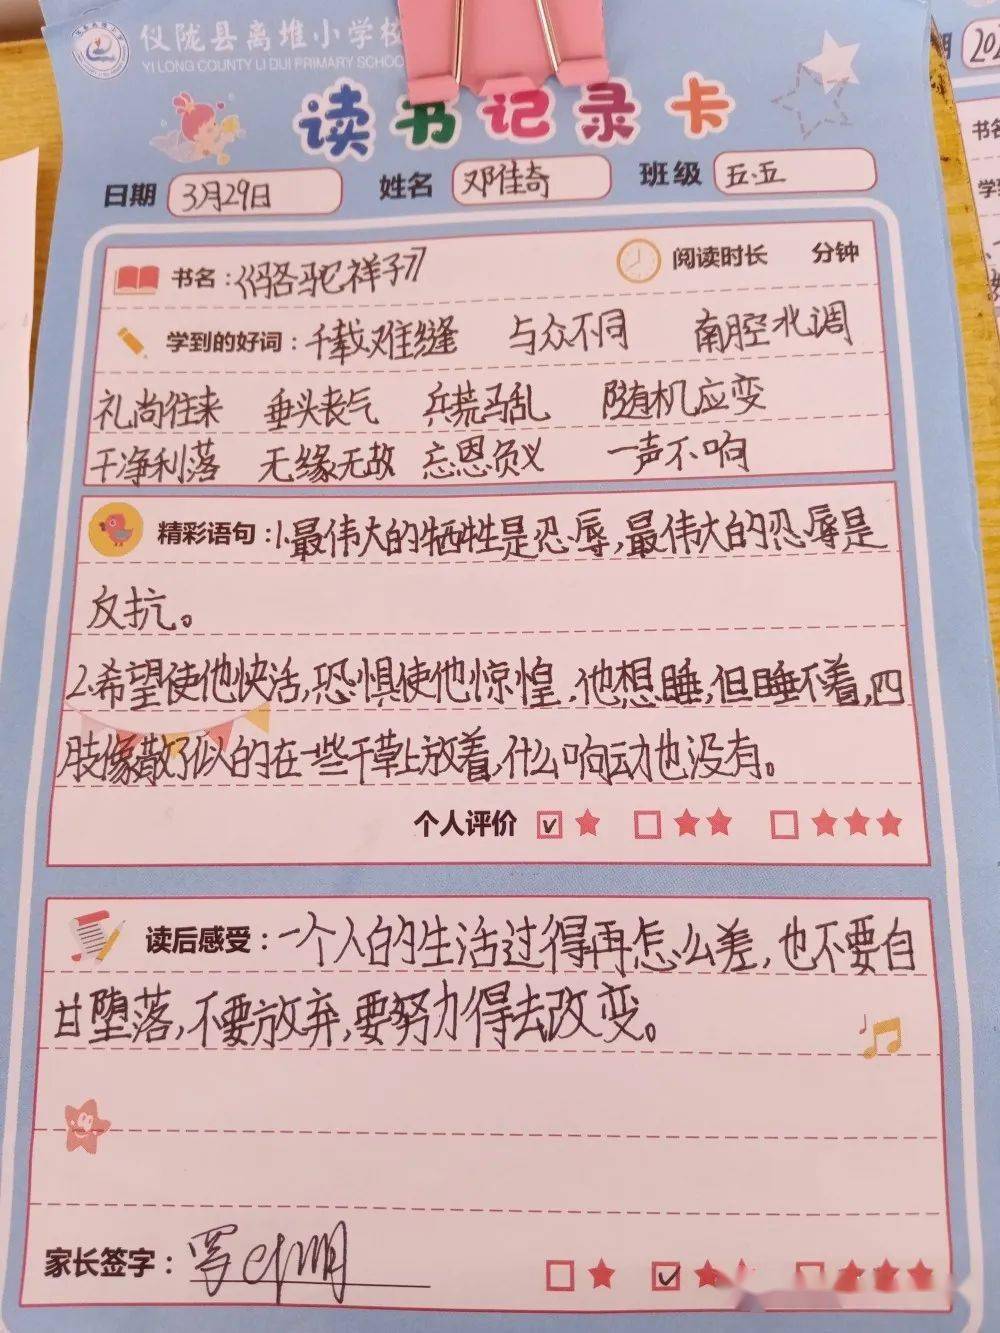 仪陇县离堆小学校
YI LONG COUNTY LI DUI PRIMARY SCHOO
读书记录卡
日期 3月29日 姓名 邓佳奇 班级 五.五
书名：《骆驼祥子》 阅读时长 分钟
学到的好词：千载难缝 与众不同 南腔北调
礼尚往来 垂头丧气 兵荒马乱 随机应变
干净利落 无缘无故 忘恩负义 一声不响
精彩语句：1.最伟大的牺牲是忍辱，最伟大的忍辱是
反抗。
2.希望使他快活，恐惧使他惊惶，他想睡，但睡不着，四
肢像散了似的在一些干草上放着，什么响动也没有。
个人评价
读后感受：一个人的生活过得再怎么差，也不要自
甘堕落，不要放弃，要努力得去改变。
家长签字：
期 202
书名
学到